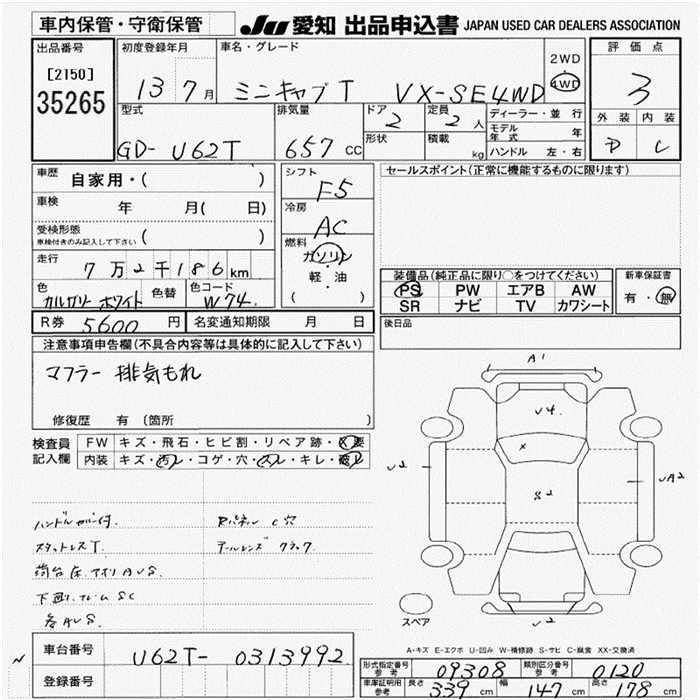 車内保管・守衛保管 JU 愛知 出品申込書 JAPAN USED CAR DEALERS ASSOCIATION
出品番号 初度登録年月 車名・グレード 評価点
[2150] 2WD
35265 13 7月 ミニキャブT VX-SE4WD 4WD 3
型式 排気量 ドア 定員 ディーラー・並行 外装 内装
2 2人 モデル年式 年 D C
GD- U62T 657cc 形状 積載 kg ハンドル 左・右
車歴 自家用・( ) シフト F5 セールスポイント(正常に機能するものに限ります)
車検 年 月( 日) 冷房 AC
受検形態 車検付きのみ記入して下さい ( ) 燃料
走行 7万2千186km ガソリン
軽・油
( )
装備品(純正品に限り○をつけてください) 新車保証書
PS PW エアB AW 有・無
SR ナビ TV カワシート
色 カルガリーホワイト 色替 色コード W74
R券 5600円 名変通知期限 月 日 後日品
注意事項申告欄(不具合内容等は具体的に記入して下さい)
マフラー 排気もれ
修復歴 有 (箇所 )
A1
U4
×
U2 S2 UA2
U2
スペア
検査員記入欄 FW キズ・飛石・ヒビ割・リペア跡・X要
内装 キズ・汚レ・コゲ・穴・スレ・キレ・破レ
ハンドルカバー付. Rパネル C穴
スタットレスT. テールレンズ クラック.
荷台床.アオリAUS.
下廻リ.フレームSC
各AUS.
A-キズ E-エクボ U-凹み W-補修跡 S-サビ C-腐食 XX-交換済
車台番号 U62T- 0313992
登録番号
形式指定番号 参考 09308 類別区分番号 参考 0120
車庫証明用 参考 長さ 339cm 幅 147cm 高さ 178cm